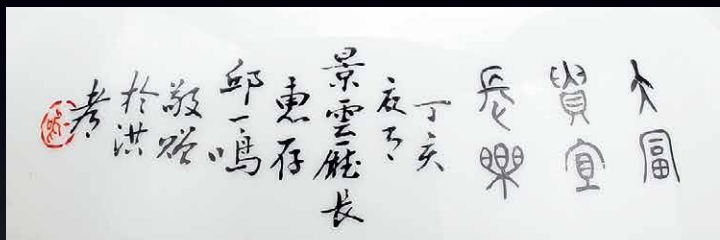 大富
貴宜
長樂
丁亥
景雲廳長
惠存
邱一鳴
敬贈
於洪